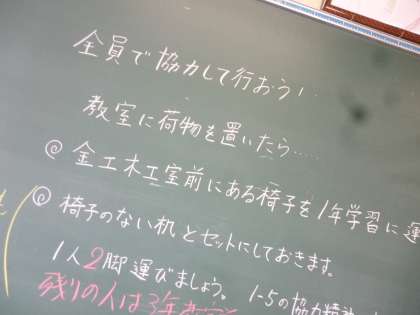 全員で協力して行おう!
教室に荷物を置いたら.....
◎ 金工木工室前にある椅子を1年学習に運
◎ 椅子のない机とセットにしておきます。
1人2脚運びましょう。 1-5の協力精神
残りの人は3年